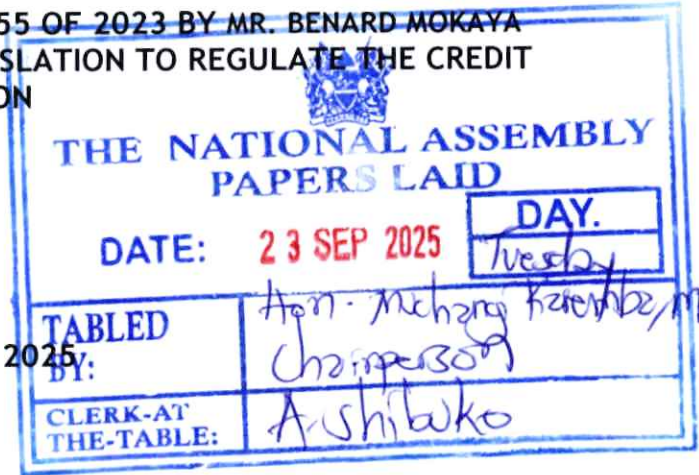 55 OF 2023 BY MR. BENARD MOKAYA
SLATION TO REGULATE THE CREDIT
ON
THE NATIONAL ASSEMBLY
PAPERS LAID
DAY.
DATE: 23 SEP 2025
Tuesday
TABLED BY:
Hon. Muchangi Karemba, M
Chairperson
2025
CLERK-AT THE-TABLE:
A. Shibuko